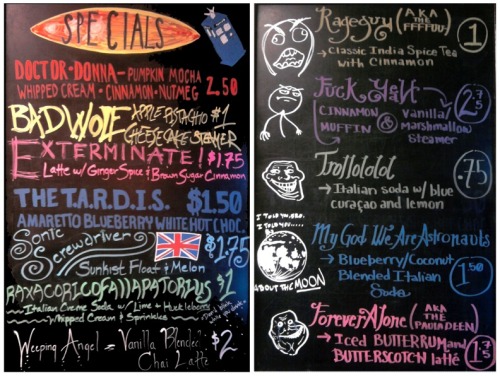 SPECIALS
DOCTOR-DONNA-PUMPKIN MOCHA
WHIPPED CREAM - CINNAMON-NUTMEG 2.50
BAD WOLF APPLE PISTACHIO $1
CHEESECAKE STEAMER
EXTERMINATE! $1.75
Latte w/ Ginger Spice & Brown Sugar Cinnamon
THE T.A.R.D.I.S. $1.50
AMARETTO BLUEBERRY WHITE HOT CHOC.
Sonic
Screwdriver $1.75
Sunkist Float & Melon
RAXACORICOFALLAPATORIUS $1
Italian Creme Soda w/ Lime & Huckleberry
Whipped Cream & Sprinkles
Weeping Angel = Vanilla Blended $2
Chai Latte
Rageguy (AKA THE FFFFUU) 1
→ Classic India Spice Tea
with Cinnamon
Fuck Yeah 2.75
CINNAMON MUFFIN & Vanilla/Marshmallow Steamer
Trollololol .75
→ Italian soda w/ blue
curaçao and lemon
I TOLD YOU, BRO.
I TOLD YOU....
ABOUT THE MOON
My God We Are Astronauts
→ Blueberry/Coconut
Blended Italian
Soda 1.50
Forever Alone (AKA THE PAULA DEEN)
→ Iced BUTTERRUM and
BUTTERSCOTCH latté 1.75